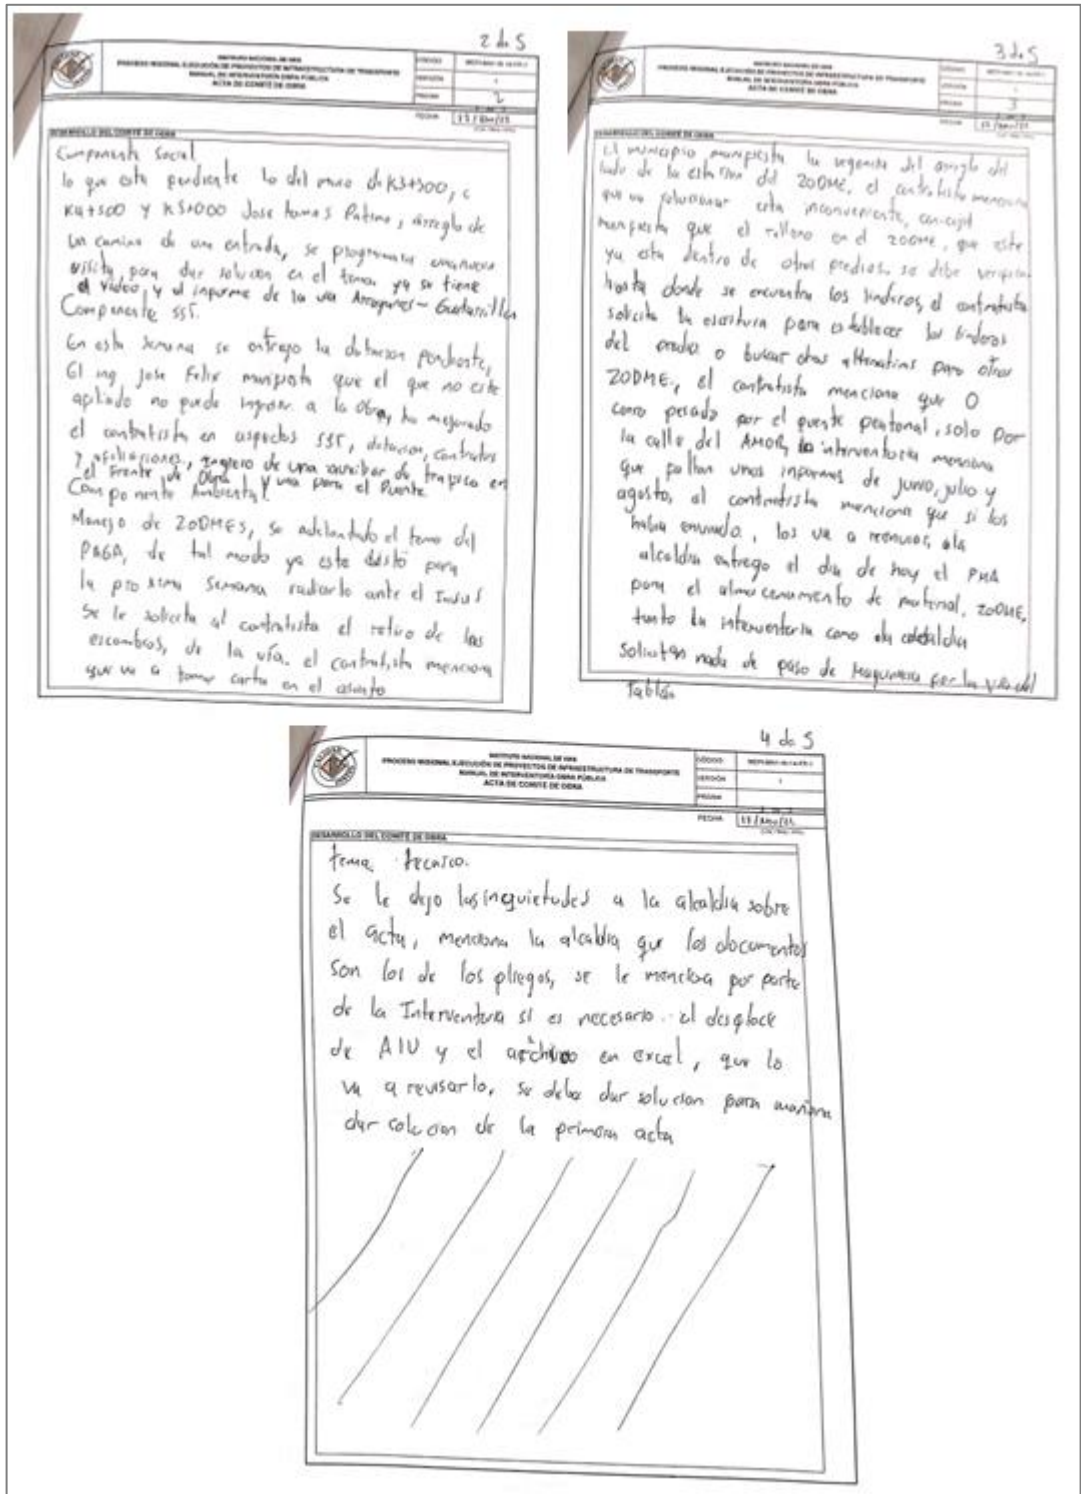 2 de 5
INSTITUTO NACIONAL DE VIAS
PROCESO MISIONAL EJECUCIÓN DE PROYECTOS DE INFRAESTRUCTURA DE TRANSPORTE
MANUAL DE INTERVENTORIA OBRA PÚBLICA
ACTA DE COMITÉ DE OBRA
CÓDIGO
VERSIÓN 1
PÁGINA 2
FECHA
DESARROLLO DEL COMITÉ DE OBRA
Componente Social
lo que esta pendiente lo del muro de K3+300, c
K4+500 y K5+000 Jose tomas Patino, arreglo de
un camino de una entrada, se programara una nueva
visita, para dar solucion en el tema, ya se tiene
el video, y el informe de la via
Componente SST.
En esta semana se entrego la dotacion pendiente,
El ing Jose Felix manifiesta que el que no este
afiliado no puede ingresar a la obra, ha mejorado
el contratista en aspectos SST, dotacion, contratos
y afiliaciones, ingreso de una auxiliar de trafico en
el Frente de Obra y una para el Puente
Componente Ambiental
Manejo de ZODMES, se adelantado el tema del
PAGA, de tal modo ya este listo para
la proxima semana radicarlo ante el
Se le solicita al contratista el retiro de los
escombros, de la vía. el contratista menciona
que va a tomar carta en el asunto
3 de 5
INSTITUTO NACIONAL DE VIAS
PROCESO MISIONAL EJECUCIÓN DE PROYECTOS DE INFRAESTRUCTURA DE TRANSPORTE
MANUAL DE INTERVENTORIA OBRA PÚBLICA
ACTA DE COMITÉ DE OBRA
CÓDIGO
VERSIÓN 1
PÁGINA 3
FECHA
DESARROLLO DEL COMITÉ DE OBRA
El municipio manifiesta la urgencia del arreglo del
lado de la del ZODME, el contratista menciona
que va solucionar este inconveniente,
manifiesta que el relleno en el ZODME, que este
ya esta dentro de otros predios, se debe verificar
hasta donde se encuentra los linderos, el contratista
solicita la escritura para establecer los linderos
del predio o buscar otras alternativas para otros
ZODME, el contratista menciona que 0
carro pesado por el puente peatonal, solo por
la calle del AMOR, la interventoria menciona
que faltan unos informes de junio, julio y
agosto, el contratista menciona que si los
habia enviado, los va a reenviar, ala
alcaldia entrego el dia de hoy el PMA
para el almacenamiento de material, ZODME,
tanto la interventoria como ala alcaldia
solicitan nada de paso de maquinaria por la via del
Tablón
4 de 5
INSTITUTO NACIONAL DE VIAS
PROCESO MISIONAL EJECUCIÓN DE PROYECTOS DE INFRAESTRUCTURA DE TRANSPORTE
MANUAL DE INTERVENTORIA OBRA PÚBLICA
ACTA DE COMITÉ DE OBRA
CÓDIGO
VERSIÓN 1
PÁGINA
FECHA
DESARROLLO DEL COMITÉ DE OBRA
tema tecnico.
Se le dejo las inquietudes a la alcaldia sobre
el acta, menciona la alcaldia que los documentos
son los de los pliegos, se le menciona por parte
de la Interventora si es necesario el desglose
de AIU y el archivo en excel, que lo
va a revisarlo, se debe dar solucion para mañana
dar solucion de la primera acta